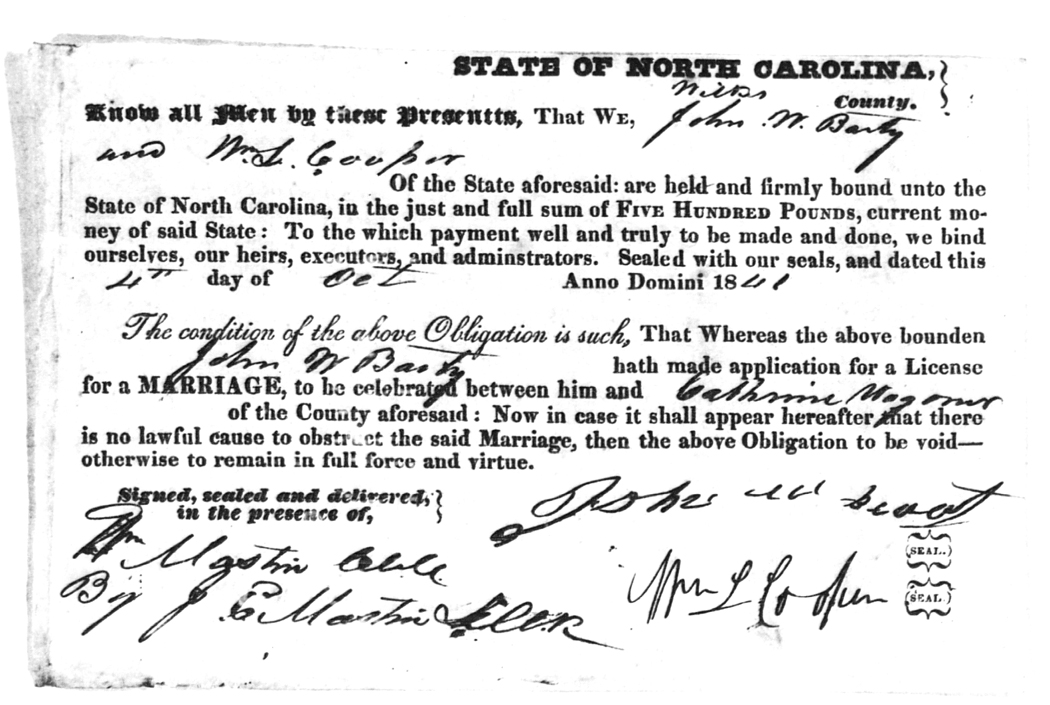 STATE OF NORTH CAROLINA,
Wilkes County.
Know all Men by these Presentts, That We, John W. Barty
and Wm L. Cooper
Of the State aforesaid: are held and firmly bound unto the
State of North Carolina, in the just and full sum of Five Hundred Pounds, current mo-
ney of said State: To the which payment well and truly to be made and done, we bind
ourselves, our heirs, executors, and adminstrators. Sealed with our seals, and dated this
4th day of Oct Anno Domini 1841
The condition of the above Obligation is such, That Whereas the above bounden
John W Barty hath made application for a License
for a MARRIAGE, to be celebrated between him and Cathrine
of the County aforesaid: Now in case it shall appear hereafter that there
is no lawful cause to obstruct the said Marriage, then the above Obligation to be void—
otherwise to remain in full force and virtue.
Signed, sealed and delivered,
in the presence of,
John W
(SEAL.)
Wm Mastin
Wm L Cooper (SEAL.)
By J Mastin